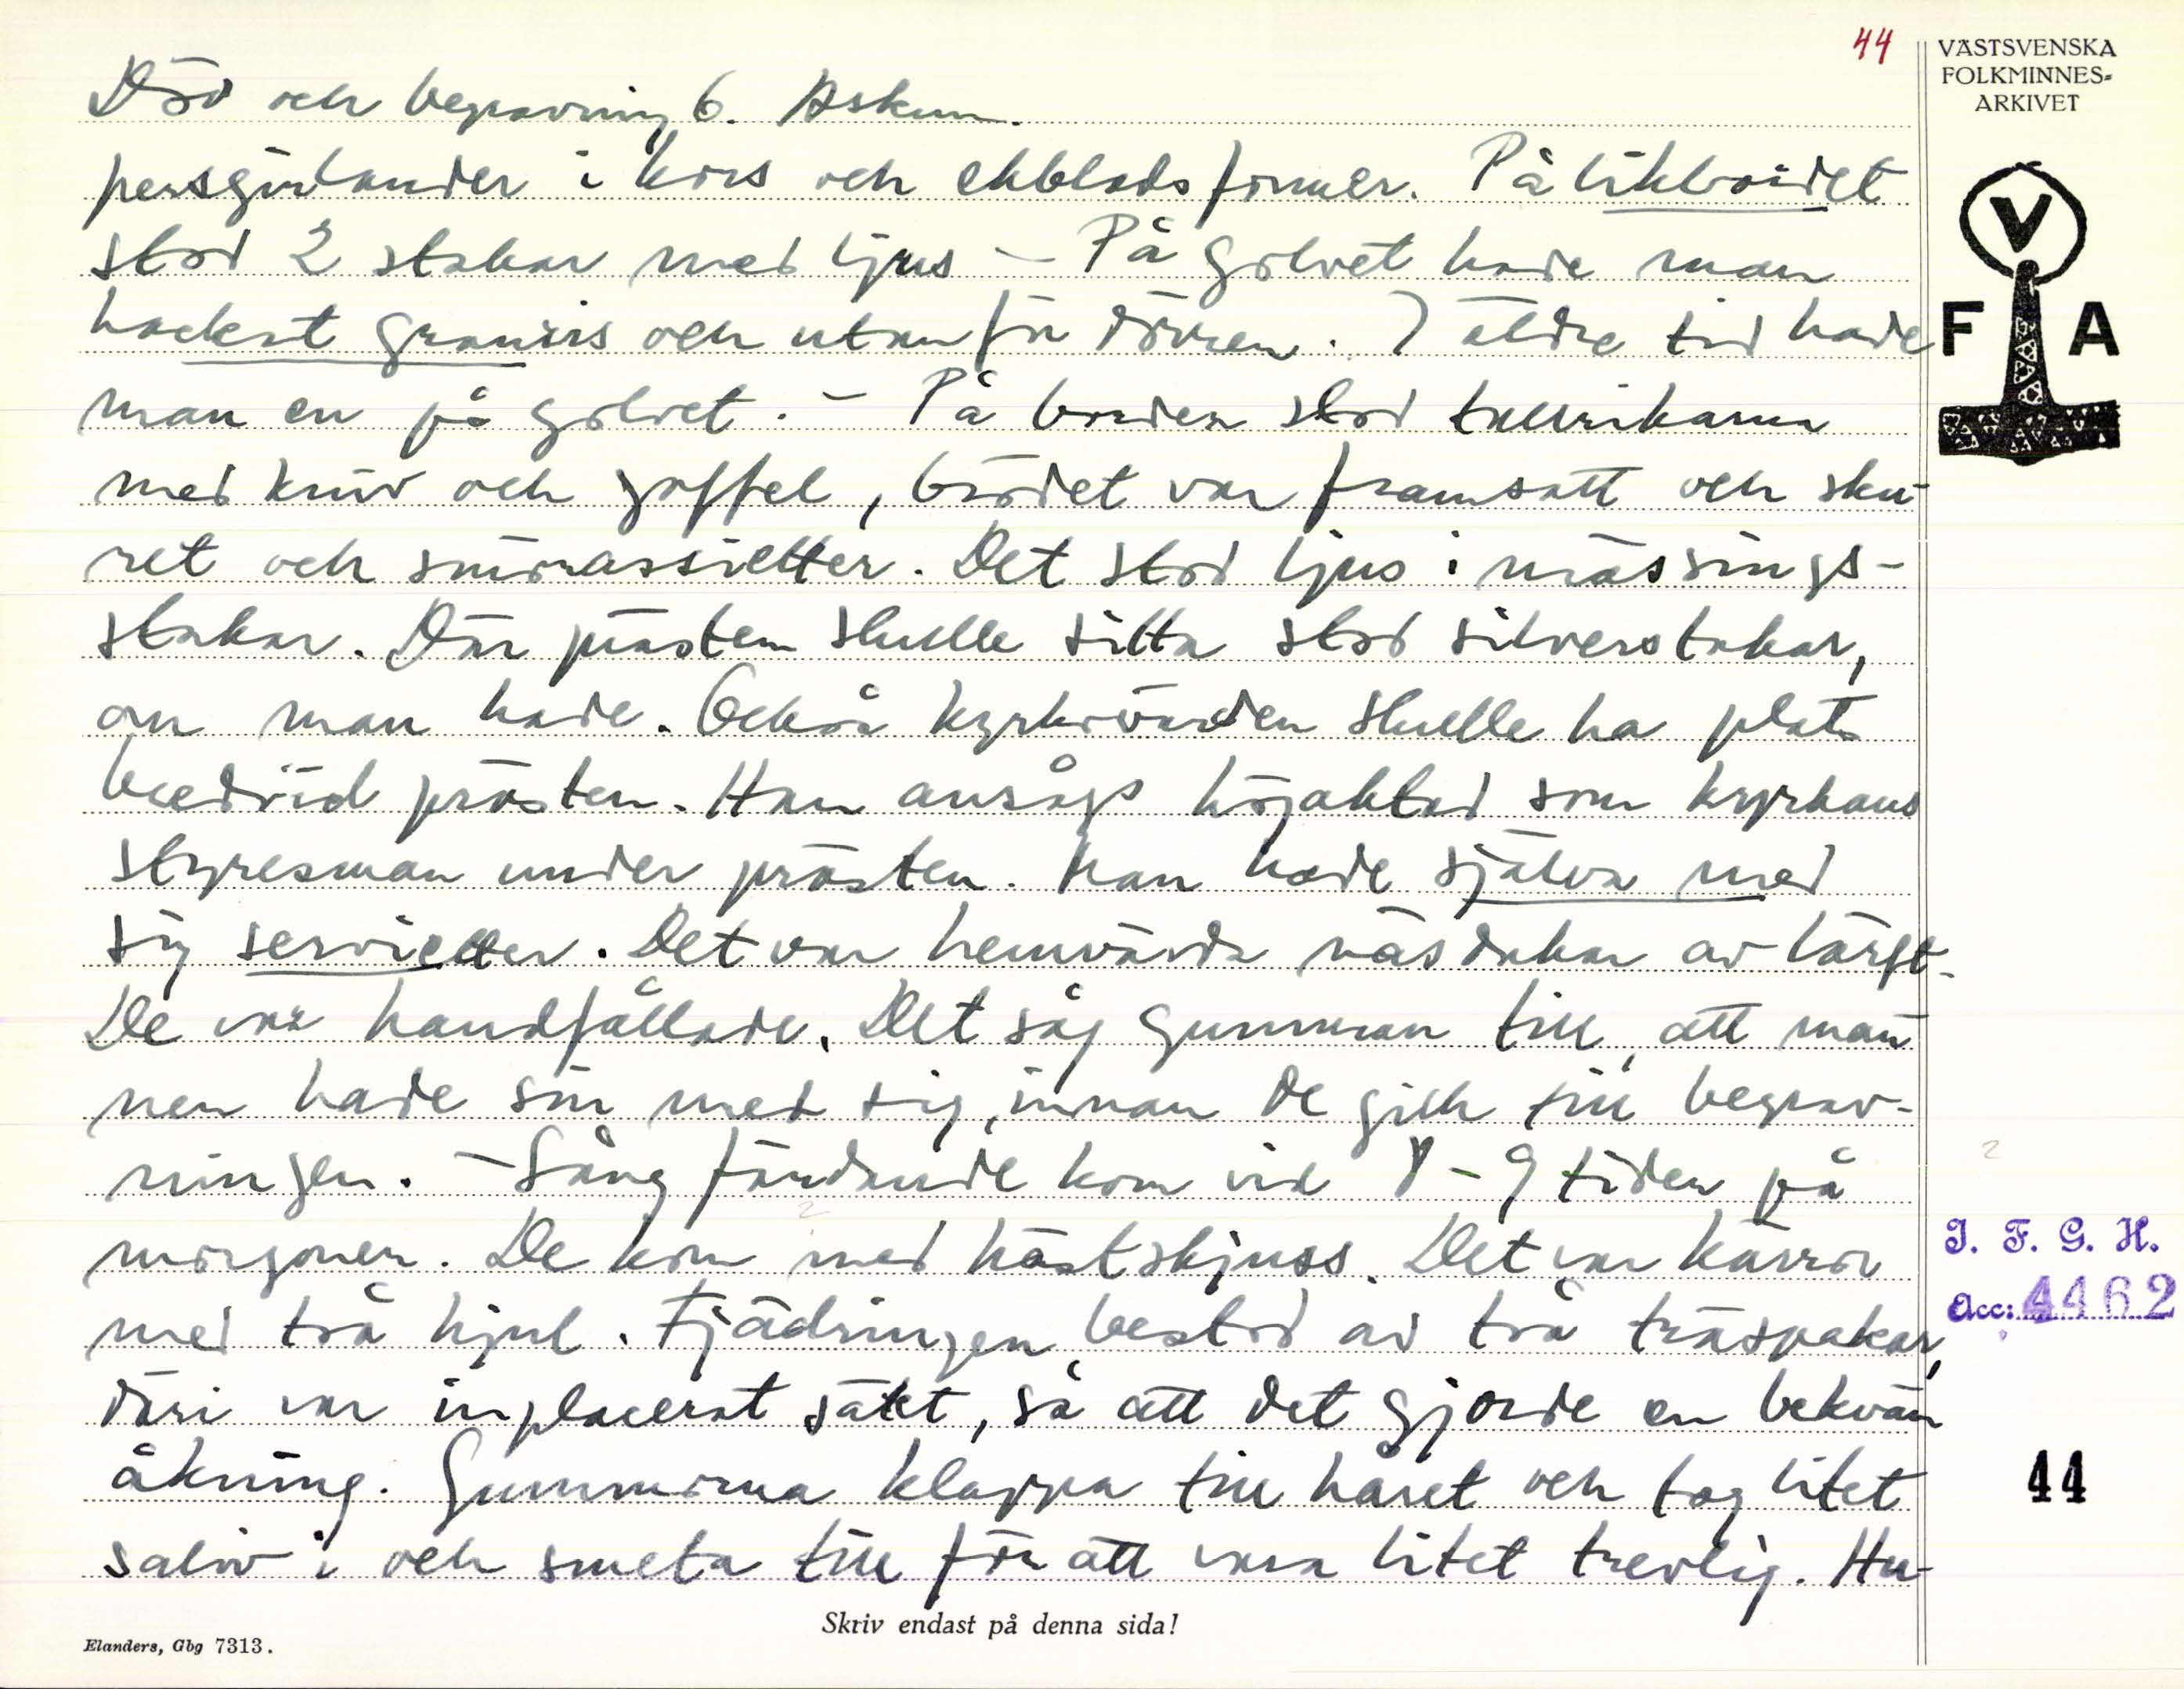 44
VÄSTSVENSKA
FOLKMINNES-
ARKIVET
V
F A
Död och begravning 6. Askum.
persgirlander i kors och ekbladsformer. På likbordet
stod 2 stakar med ljus – På golvet hade man
hackat granris och utanför dörren. I äldre tid hade
man en på golvet. – På borden stod tallrikarna
med kniv och gaffel, brödet var framsatt och sku-
ret och smörassietter. Det stod ljus i mässings-
stakar. Där prästen skulle sitta stod silverstakar,
om man hade. Också kyrkvärden skulle ha plats
bredvid prästen. Han ansågs högaktad som kyrkans
styresman under prästen. Man hade själva med
sig servietter. Det var hemvävda näsdukar av lärft.
De var handfållade. Det såg gumman till, att män
nen hade sin med sig, innan de gick till begrav-
ningen. – Långfärdande kom vid 8–9 tiden på
morgonen. De kom med hästskjuss. Det var kärror
med två hjul. Fjädringen bestod av två träspakar,
däri var inplacerat sätet, så att det gjorde en bekväm
åkning. Gummorna klappa till håret och tog litet
saliv i och smeta till för att vara litet trevlig. Hu-
I. F. G. H.
Acc: 4462
44
Skriv endast på denna sida!
Elanders, Gbg 7313.